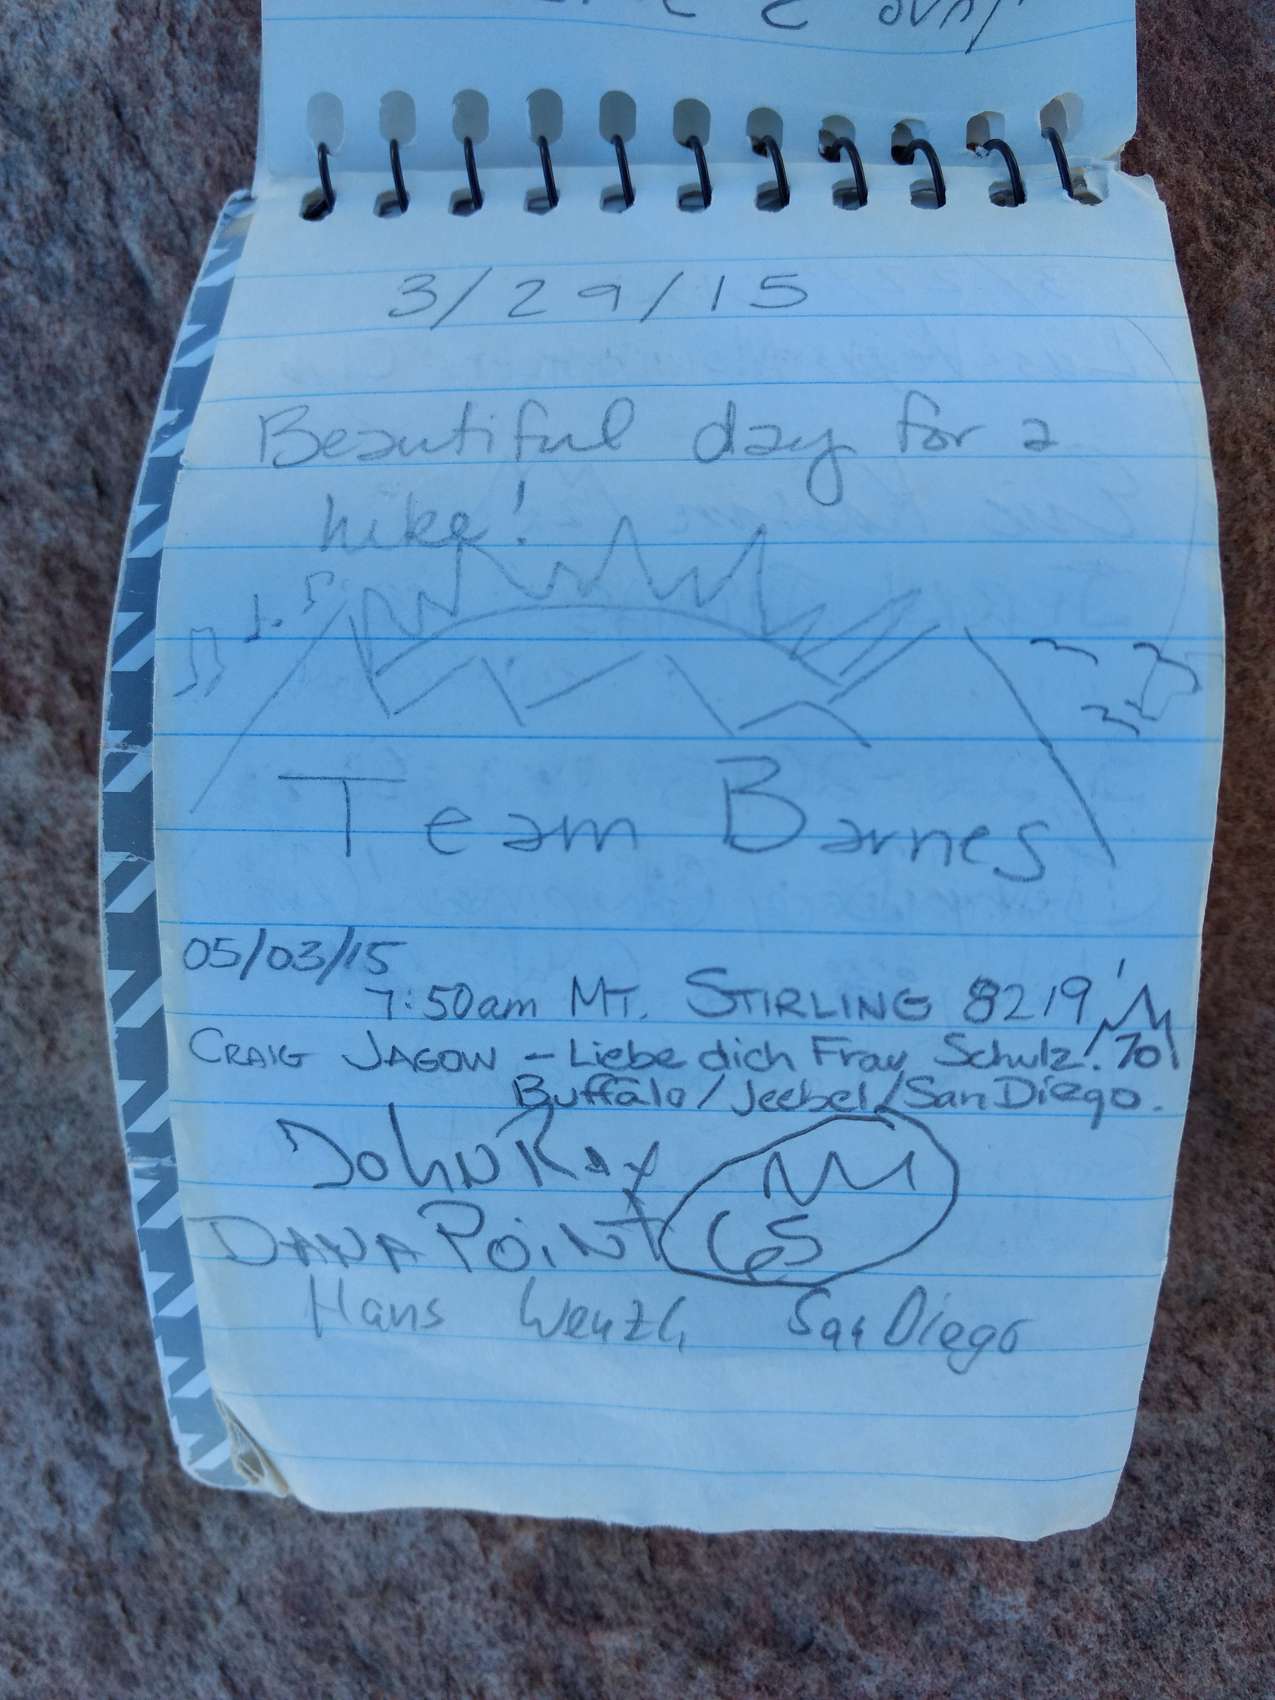 3/29/15
Beautiful day for a
hike!
Team Barnes
05/03/15
7:50am MT. STIRLING 8219'
CRAIG JAGOW – Liebe dich Frau Schulz! 70
Buffalo/Jeebel/San Diego.
John Ray
DANA POINT 65
Hans San Diego